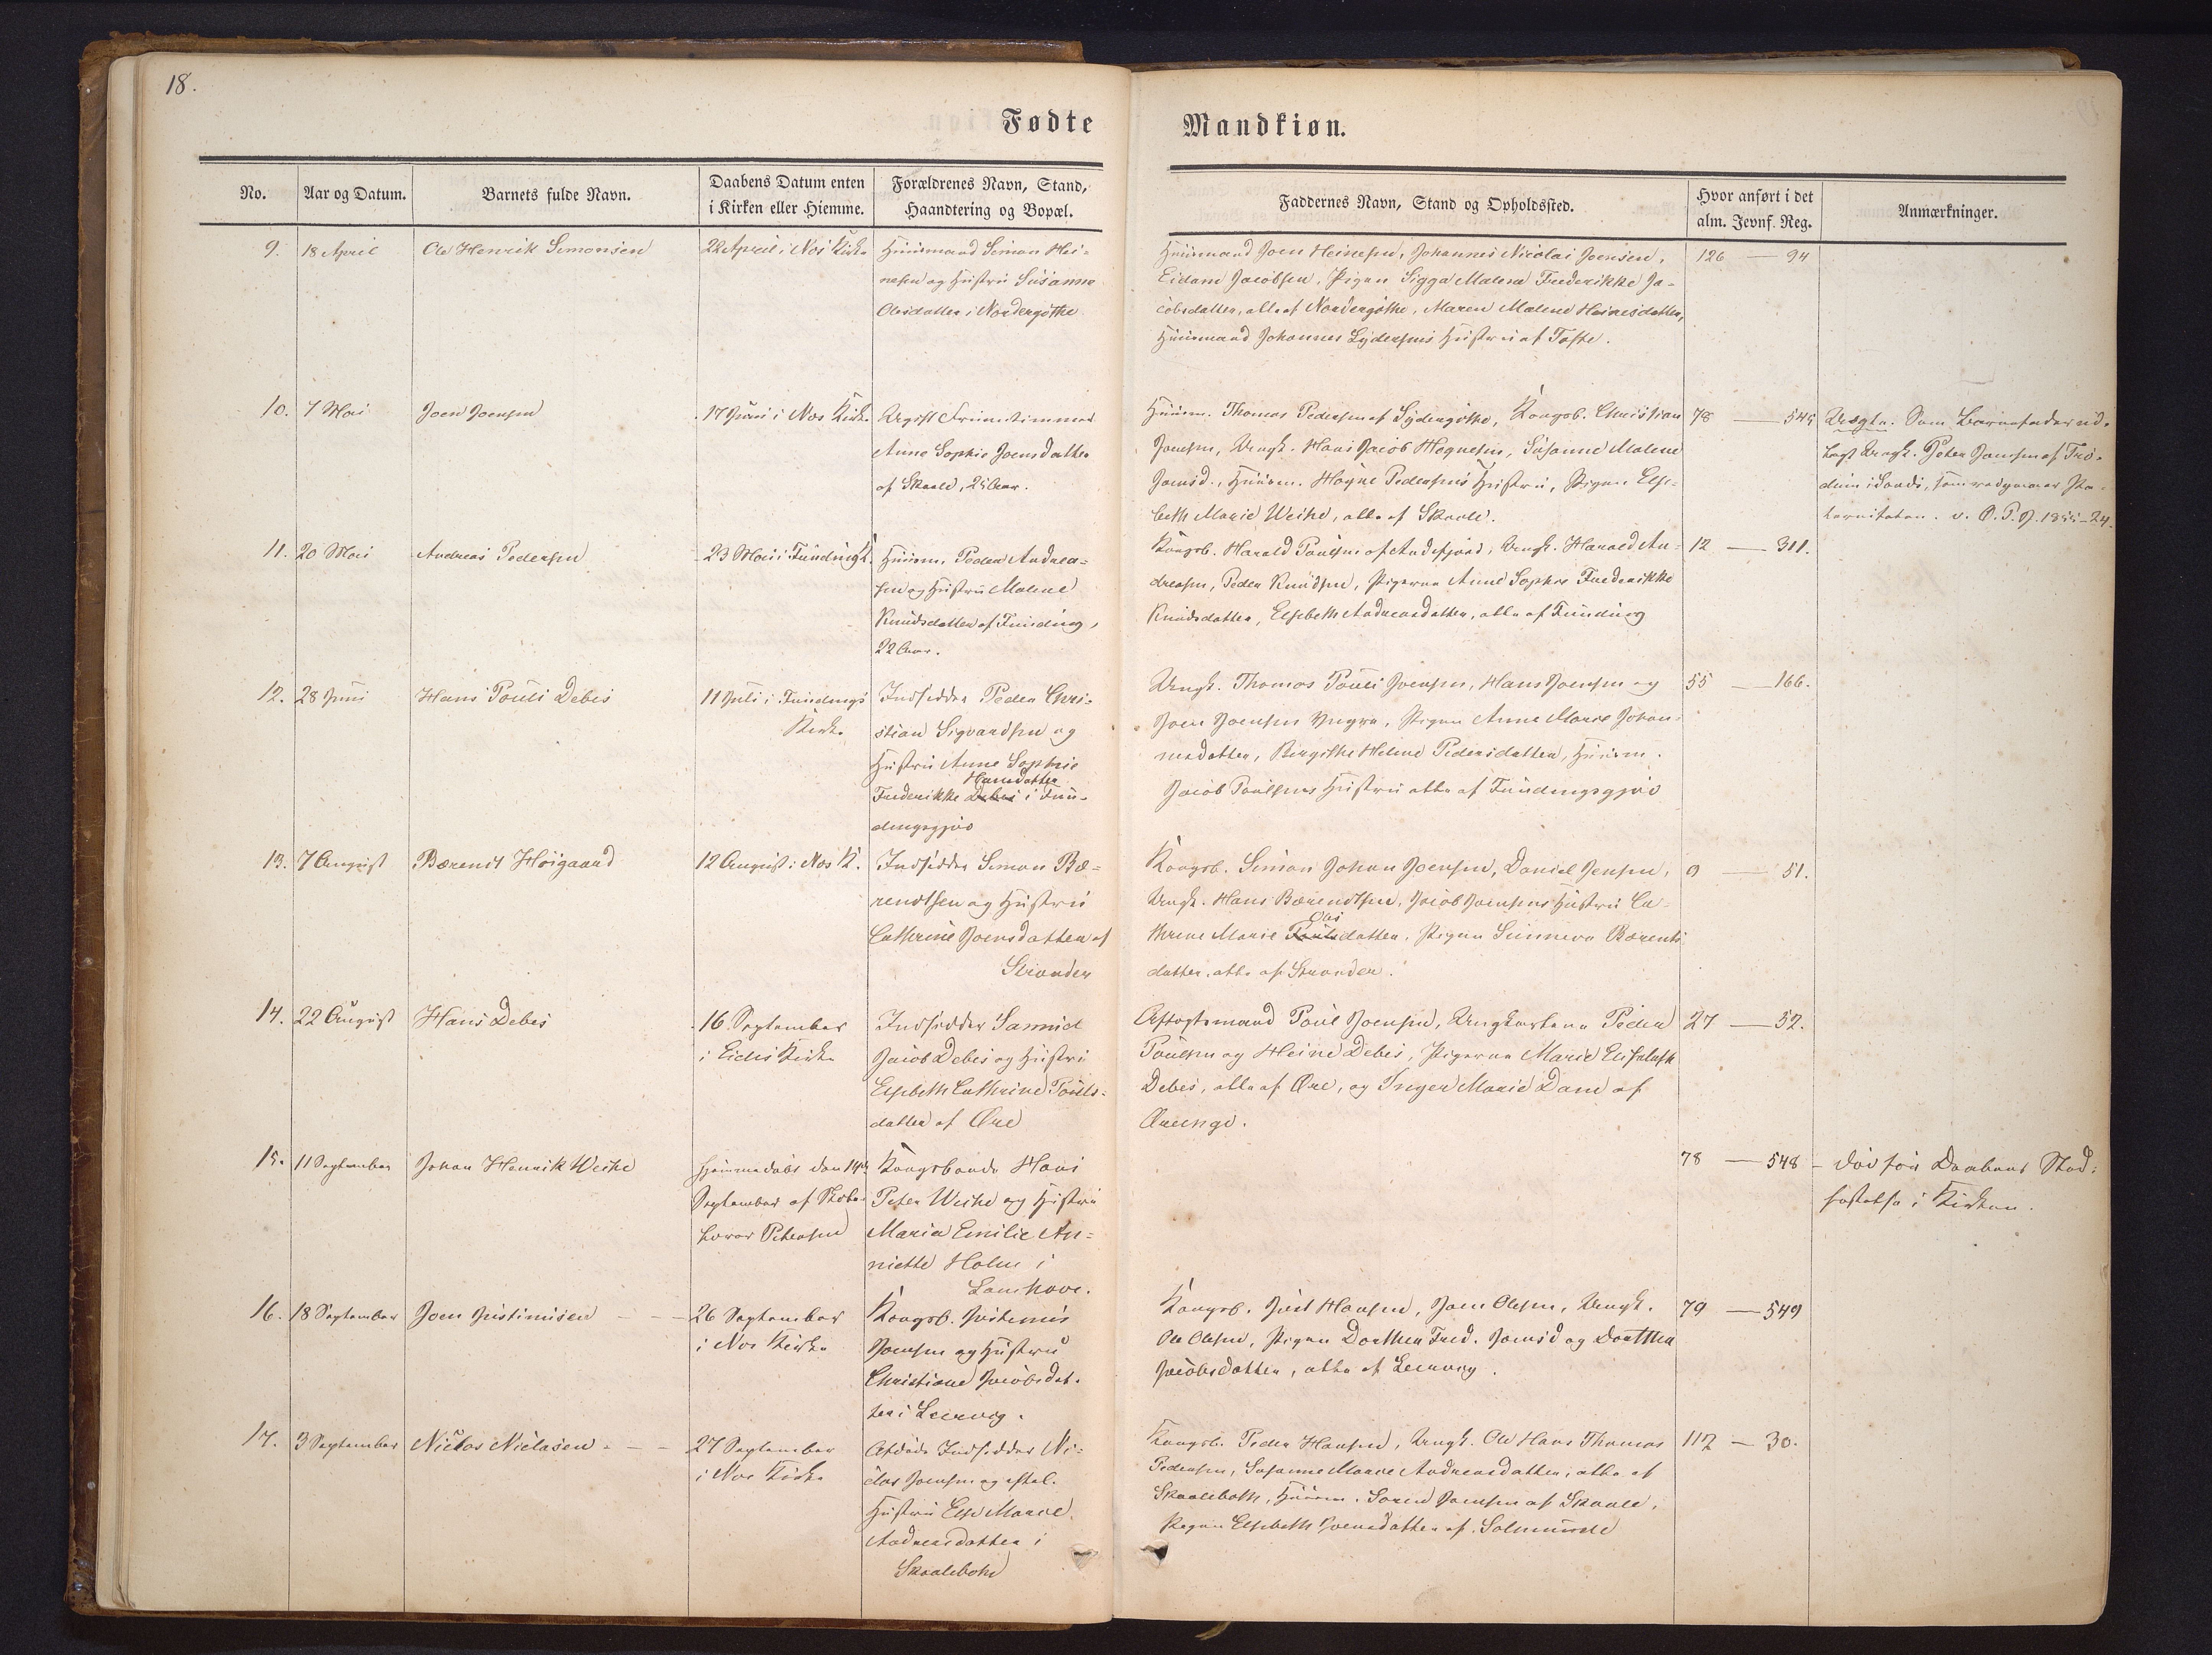 18.
Fødte
Mandkiøn.
No.
Aar og Datum.
Barnets fulde Navn.
Daabens Datum enten
i Kirken eller Hiemme.
Forældrenes Navn, Stand,
Haandtering og Bopæl.
Faddernes Navn, Stand og Opholdssted.
Hvor anført i det
alm. Jevnf. Reg.
Anmærkninger.
9.
18 April
Ole Henrik Simonsen
22 April i Næs Kirke
Huusmand Simon Hei-
nesen og Hustru Susanne
Olesdatter i Nordergøthe
Huusmand Joen Heinesen, Johannes Nicolai Joensen,
Eidam Jacobsen, Pigen Sigga Malene Frederikke Ja-
cobsdatter, alle af Nordergøthe, Maren Malene Heinesdatter,
Huusmand Johannes Lydersens Hustru af Tofte.
126 — 94
10.
7 Mai
Joen Joensen
17 Juni i Næs Kirke
Ugift Fruentimmer
Anne Sophie Joensdatter
af Skaale, 25 Aar.
Huusm. Thomas Pedersen af Sydergøthe, Kongsb. Christian
Joensen, Ungk. Hans Jacob Høgnesen, Susanne Malene
Joensd., Huusm. Høgne Pedersens Hustru, Pigen Else-
beth Marie Weihe, alle af Skaale.
78 — 545
Uægte. Som Barnefader ud-
lagt Ungk. Peter Joensen af Trø-
dum i Sandø, som vedgaaer Pa-
terniteten. v. O. P. J. 1855-24.
11.
20 Mai
Andreas Pedersen
23 Mai i Funding K.
Huusm. Peder Andrea-
sen og Hustru Malene
Knudsdatter af Funding,
22 Aar.
Kongsb. Harald Poulsen af Andefjord, Ungk. Harald An-
dreasen, Peder Knudsen, Pigerne Anne Sophie Frederikke
Knudsdatter, Elsebeth Andreasdatter, alle af Funding
12 — 311.
12.
28 Juni
Hans Pouli Debes
11 Juli i Fundings
Kirke
Indsidder Peder Chri-
stian Sigvardsen og
Hustru Anne Sophie
Hansdatter
Frederikke Debes i Fun-
dingsgjov
Ungk. Thomas Pouli Joensen, Hans Joensen og
Joen Joensen Yngre, Pigen Anne Marie Johan-
nesdatter, Birgithe Helene Pedersdatter, Huusm.
Jacob Poulsens Hustru alle af Fundingsgjov
55 — 166.
13.
7 August
Bærendt Høigaard
12 August i Næs K.
Indsidder Simon Bæ-
rendtsen og Hustru
Cathrine Joensdatter af
Strander
Kongsb. Simon Johan Joensen, Daniel Jensen,
Ungk. Hans Bærendtsen, Jacob Joensens Hustru Ca-
Ols
threne Marie Poulsdatter, Pigen Sunneva Bærents
datter, alle af Strander.
9 — 51.
14.
22 August
Hans Debes
16 September
i Eides Kirke
Indsidder Samuel
Jacob Debes og Hustru
Elsebeth Cathrine Pouls-
datter af Øre
Aftægtsmand Poul Joensen, Ungkarlene Peder
Poulsen og Heine Debes, Pigerne Marie Elisabeth
Debes, alle af Øre, og Inger Marie Dam af
Øreenge.
27 — 52.
15.
11 September
Johan Henrik Weihe
Hjemmedøbt den 14de
September af Skole-
lærer Petersen
Kongsbonde Hans
Peter Weihe og Hustru
Maria Emilie An-
niette Holm i
Lamhave.
78 — 548
døde før Daabens Stad-
fæstelse i Kirken.
16.
18 September
Joen Justinusen
26 September
i Næs Kirke
Kongsb. Justinus
Joensen og Hustru
Christiane Jacobsdat-
ter i Leervig.
Kongsb. Just Hansen, Joen Olesen, Ungk.
Ole Olesen, Pigen Dorthea Fred. Joensd og Dorthea
Jacobsdatter, alle af Leervig.
79 — 549
17.
3 September
Niclas Niclasen
27 September
i Næs Kirke
Afdøde Indsidder Ni-
clas Joensen og eftel.
Hustru Else Marie
Andreasdatter i
Skaalebotn
Kongsb. Peder Hansen, Ungk. Ole Hans Thomas
Pedersen, Susanne Marie Andreasdatter, alle af
Skaalebotn, Huusm. Soren Joensen af Skaale,
Pigen Elsebeth Joensdatter af Solmunde
112 — 30.